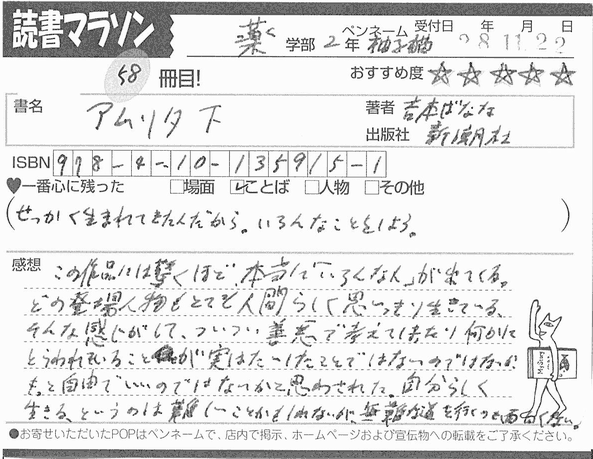 読書マラソン
薬 学部 2年 ペンネーム 柚子猫 受付日 年 月 日 28 11 22
58 冊目!
おすすめ度 ☆☆☆☆☆
書名 アムリタ 下
著者 吉本ばなな
出版社 新潮社
ISBN 978-4-10-135915-1
♥一番心に残った □場面 ☑ことば □人物 □その他
(せっかく生まれてきたんだから。いろんなことをしよう。)
感想
この作品には驚くほど、本当で「いろんな人」が出てくる。
どの登場人物もとても人間らしく思いっきり生きている、
そんな感じがして、ついつい善悪で考えてしまったり何かに
とらわれていることが実はたいしたことではないのではないか
もっと自由でいいのではないかと思わされた。自分らしく
生きる、というのは難しいことかもしれないが、無難な道を行くのも面白くない。
●お寄せいただいたPOPはペンネームで、店内で掲示、ホームページおよび宣伝物への転載をご了承ください。